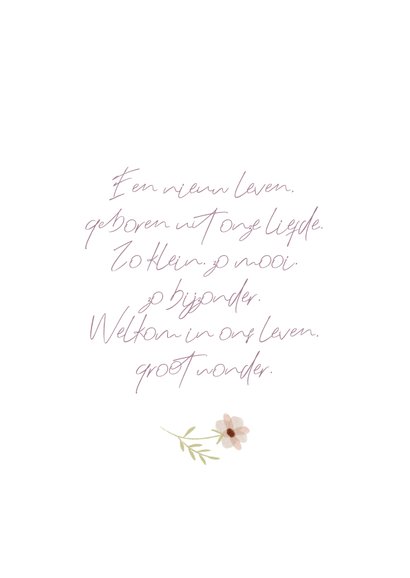 Een nieuw leven.
geboren uit onze liefde.
Zo klein. zo mooi.
zo bijzonder.
Welkom in ons leven.
groot wonder.